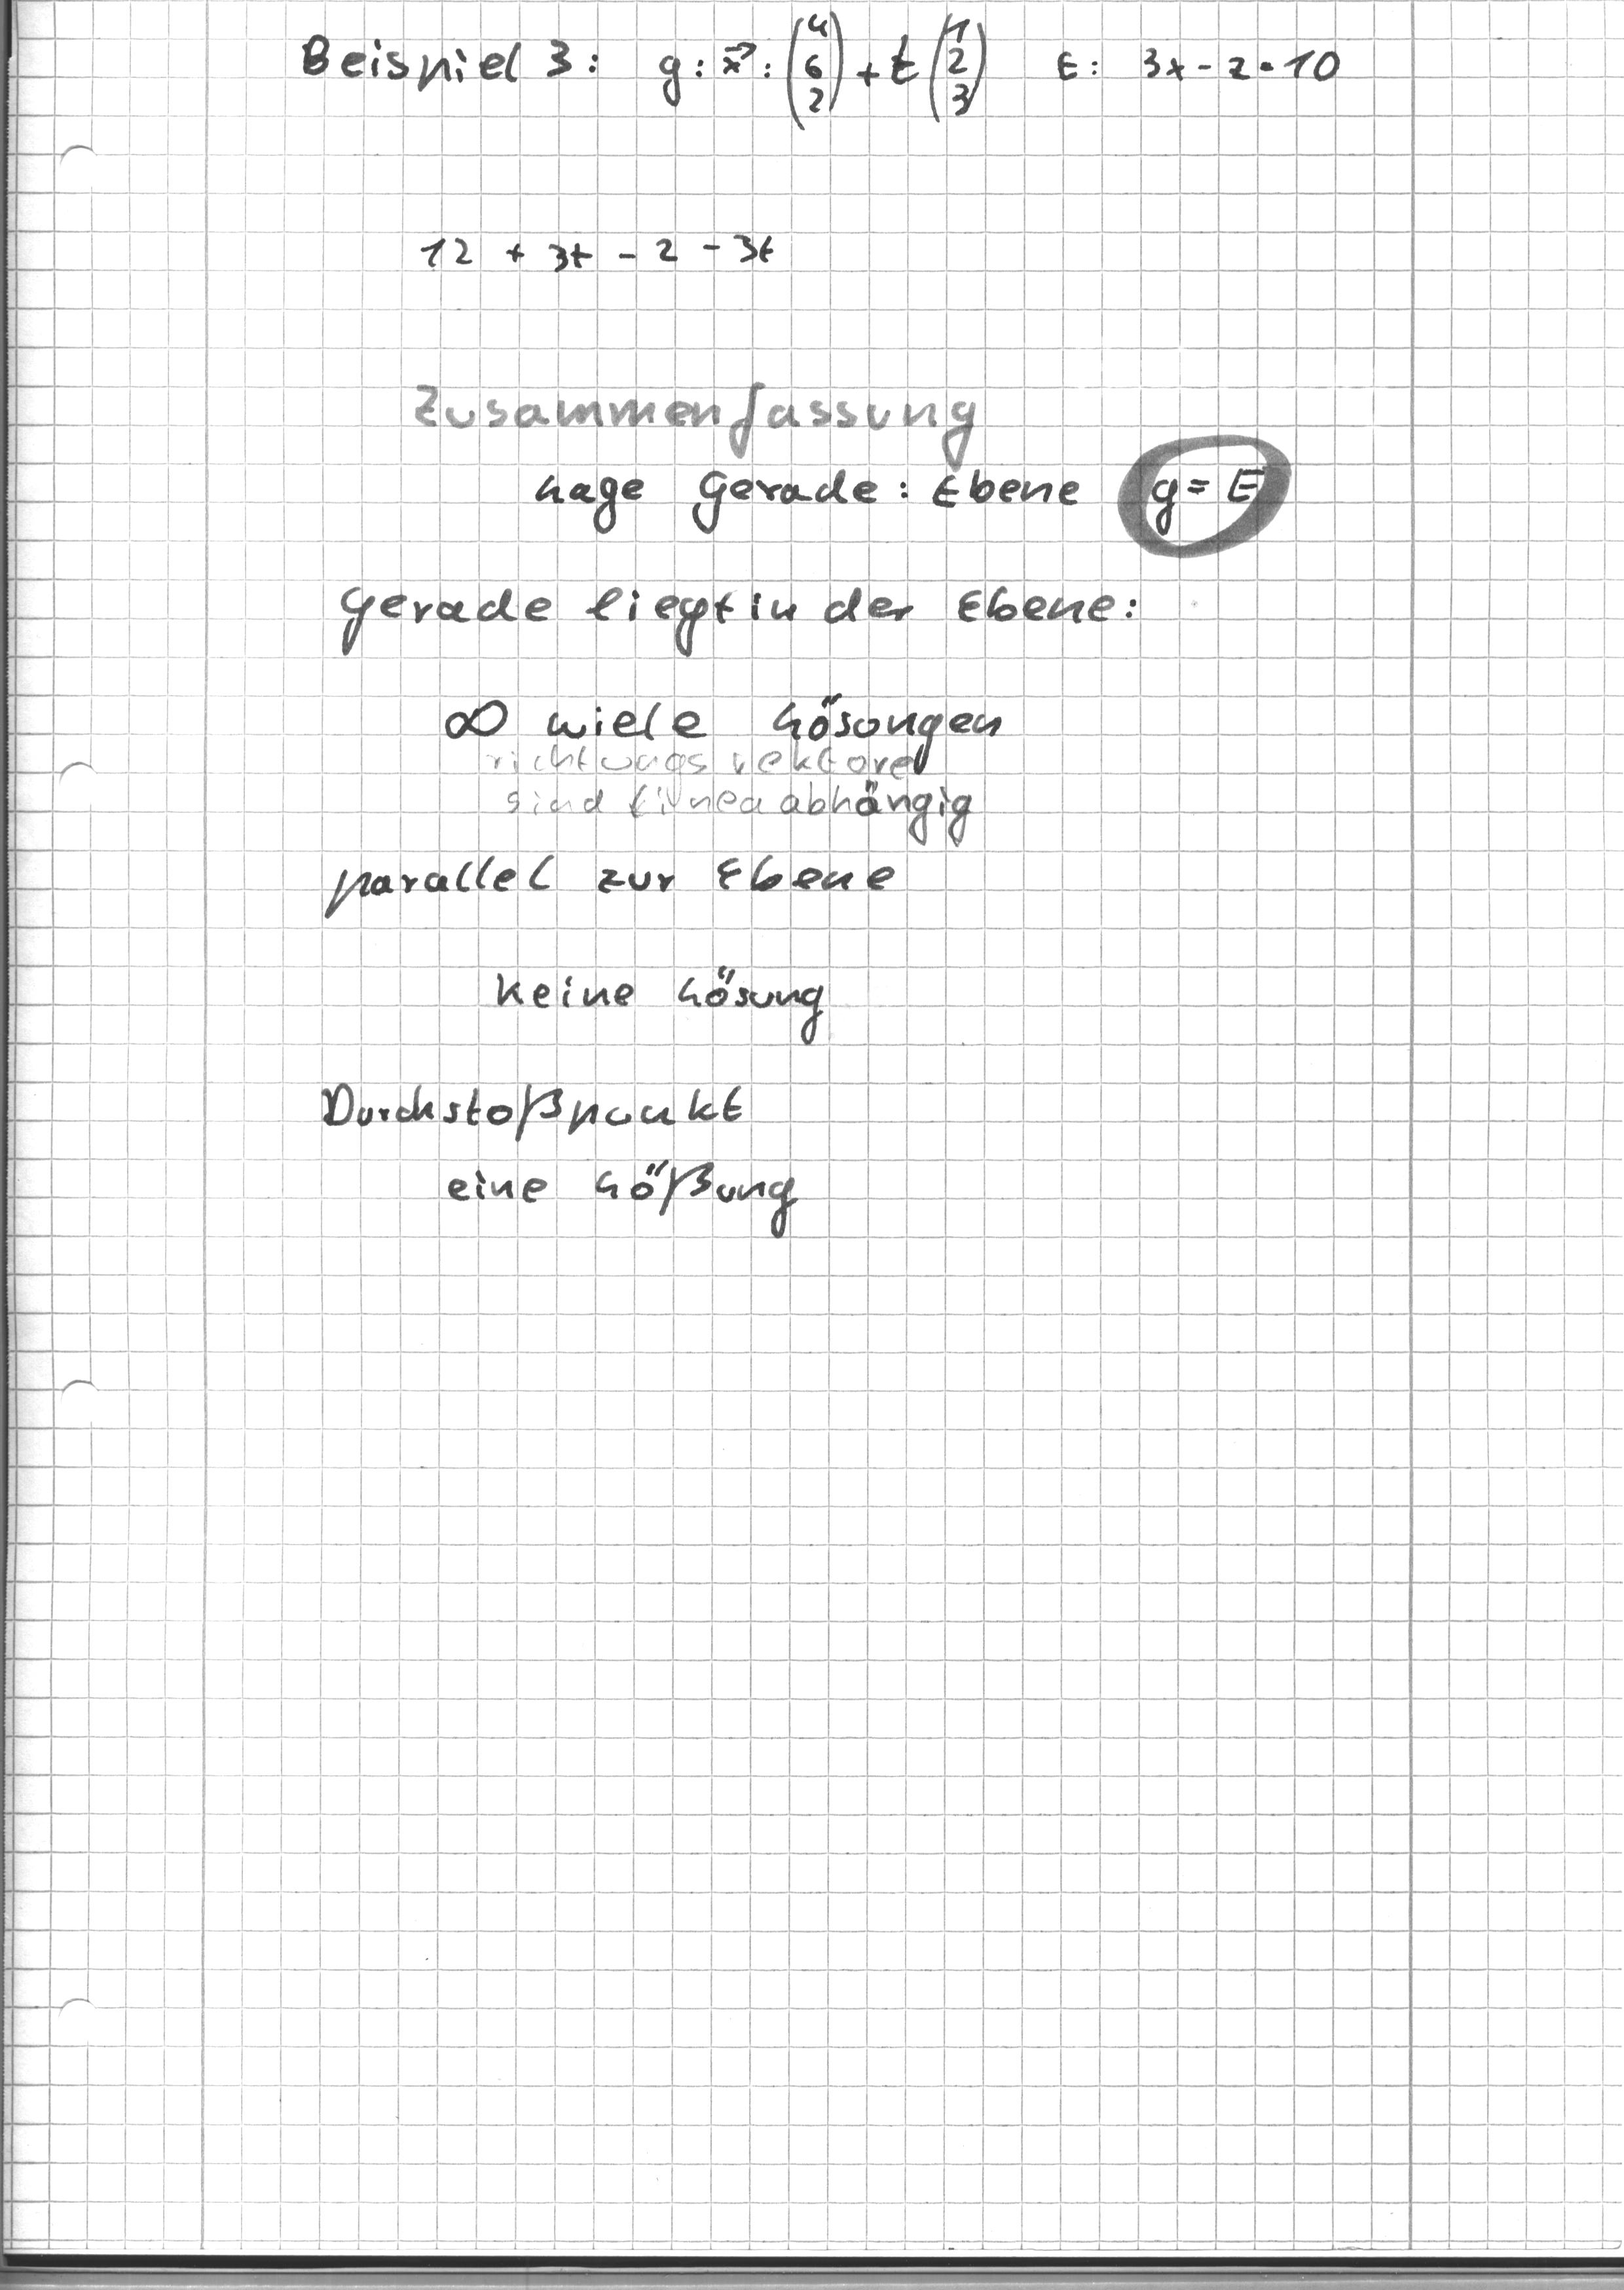 Beispiel 3: g: x⃗: (4 6 2) + t (1 2 3) E: 3x - z = 10
12 + 3t - 2 - 3t
Zusammenfassung
Lage Gerade: Ebene g = E
Gerade liegt in der Ebene:
∞ wiele Lösungen
richtungsvektore
sind linea abhängig
parallel zur Ebene
keine Lösung
Durchstoßpunkt
eine Lößung